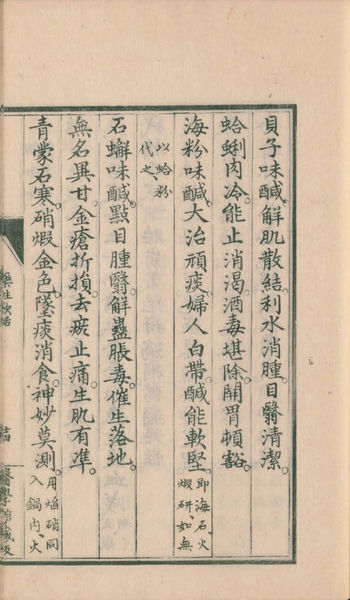 貝子味鹹。解肌散結。利水消腫。目翳清潔。
蛤蜊肉冷。能止消渴。酒毒堪除。開胃頓豁。
海粉味鹹。大治頑痰。婦人白帶。鹹能軟堅。即海石火煅研如無
以蛤粉代之
石蠏味鹹。點目腫翳。解蠱脹毒。催生落地。
無名異甘。金瘡折損。去瘀止痛。生肌有凖。
青蒙石寒。硝煅金色。墜痰消食。神妙莫測。用焰硝同入鍋內火